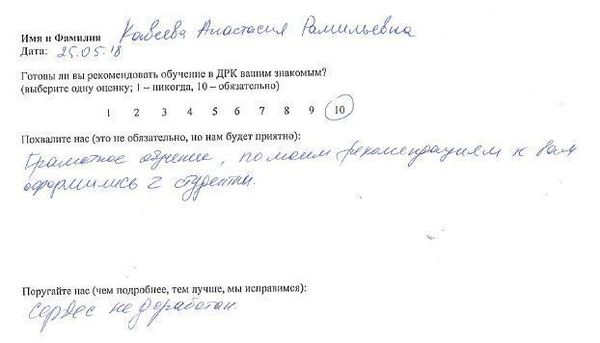 Имя и Фамилия Кавеева Анастасия Рамильевна
Дата: 25.05.18
Готовы ли вы рекомендовать обучение в ДРК вашим знакомым?
(выберите одну оценку; 1 – никогда, 10 – обязательно)
1 2 3 4 5 6 7 8 9 10
Похвалите нас (это не обязательно, но нам будет приятно):
Грамотное обучение, по моим рекомендациям к вам
оформились 2 студентки.
Поругайте нас (чем подробнее, тем лучше, мы исправимся):
Сервес не доработан.